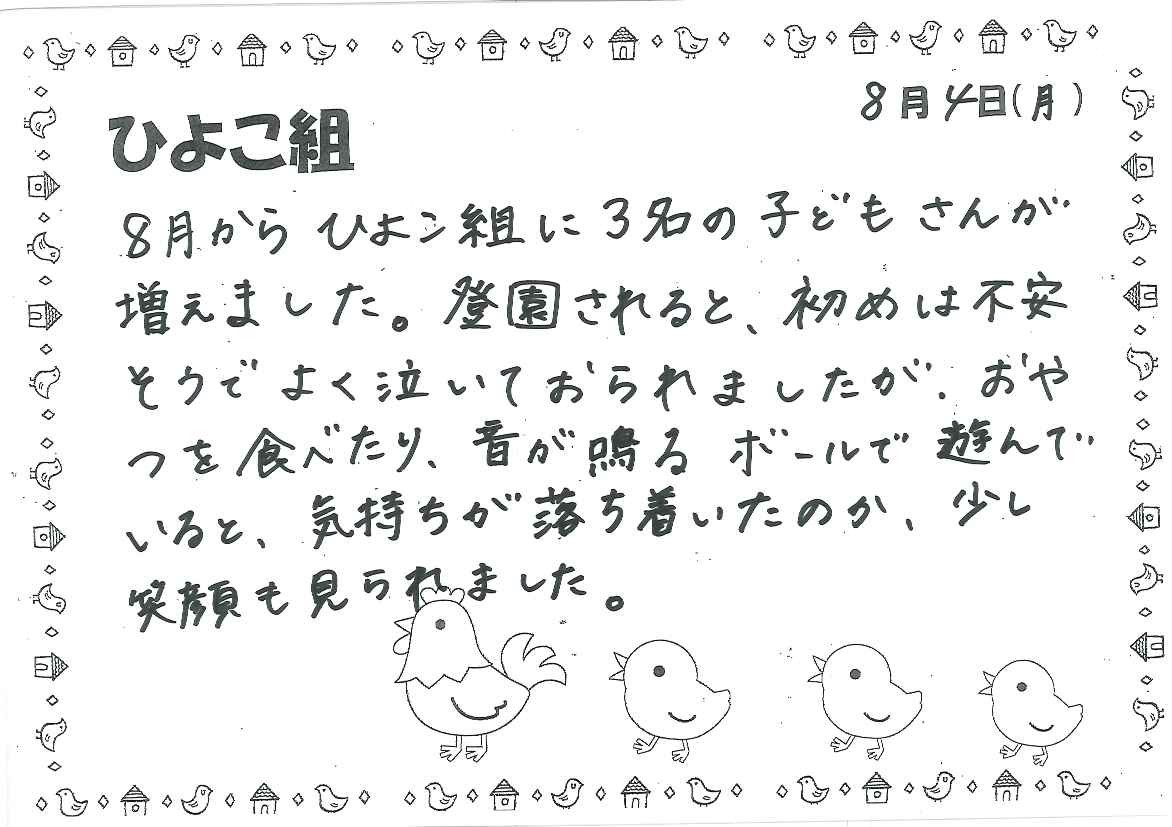 8月4日(月)
ひよこ組
8月からひよこ組に3名の子どもさんが
増えました。登園されると、初めは不安
そうでよく泣いておられましたが、おや
つを食べたり、音が鳴るボールで遊んで
いると、気持ちが落ち着いたのか、少し
笑顔も見られました。